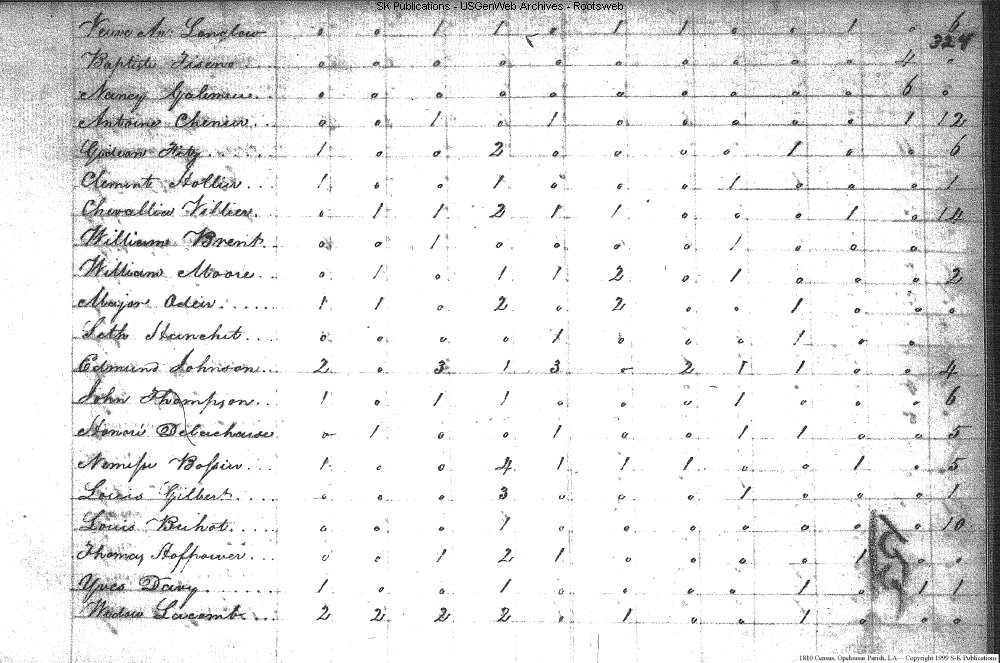 SK Publications - USGenWeb Archives - Rootsweb
Veuve An: Langlow 0 0 1 1 0 1 1 0 0 1 0 6
324
Baptiste 0 0 0 0 0 0 0 0 0 0 4 0
Nancy 0 0 0 0 0 0 0 0 0 0 6 0
Antoine Chenier 0 0 1 0 1 0 0 0 0 0 1 12
Fitz 1 0 0 2 0 0 0 0 1 0 0 6
Clemente Hollier 1 0 0 1 0 0 0 1 0 0 0 1
Chevallier Villier 0 1 1 2 1 1 0 0 0 1 0 14
William Brent 0 0 1 0 0 0 0 1 0 0 0
William Moore 0 1 0 1 1 2 0 1 0 0 0 2
Major Adeir 1 1 0 2 0 2 0 0 1 0 0 0
Seth Hanchet 0 0 0 0 1 0 0 0 1 0 0
Edmund Johnson 2 0 3 1 3 0 2 1 1 0 0 4
John Thompson 1 0 1 1 0 0 0 1 0 0 0 6
Honoré 0 1 0 0 1 0 0 1 1 0 0 5
Bossier 1 0 0 4 1 1 1 0 0 1 0 5
Louis Gilbert 0 0 0 3 0 0 0 1 0 0 0 1
Louis Buhot 0 0 0 1 0 0 0 0 0 0 0 10
Thomas Hofpawer 0 0 1 2 1 0 0 0 0 1 0 0
Yves Davy 1 0 0 1 0 0 0 0 1 0 1 1
Lacomb 2 2 2 2 0 1 0 0 1 0 0 0
1810 Census, Opelousas Parish, LA -- Copyright 1999 S-K Publications